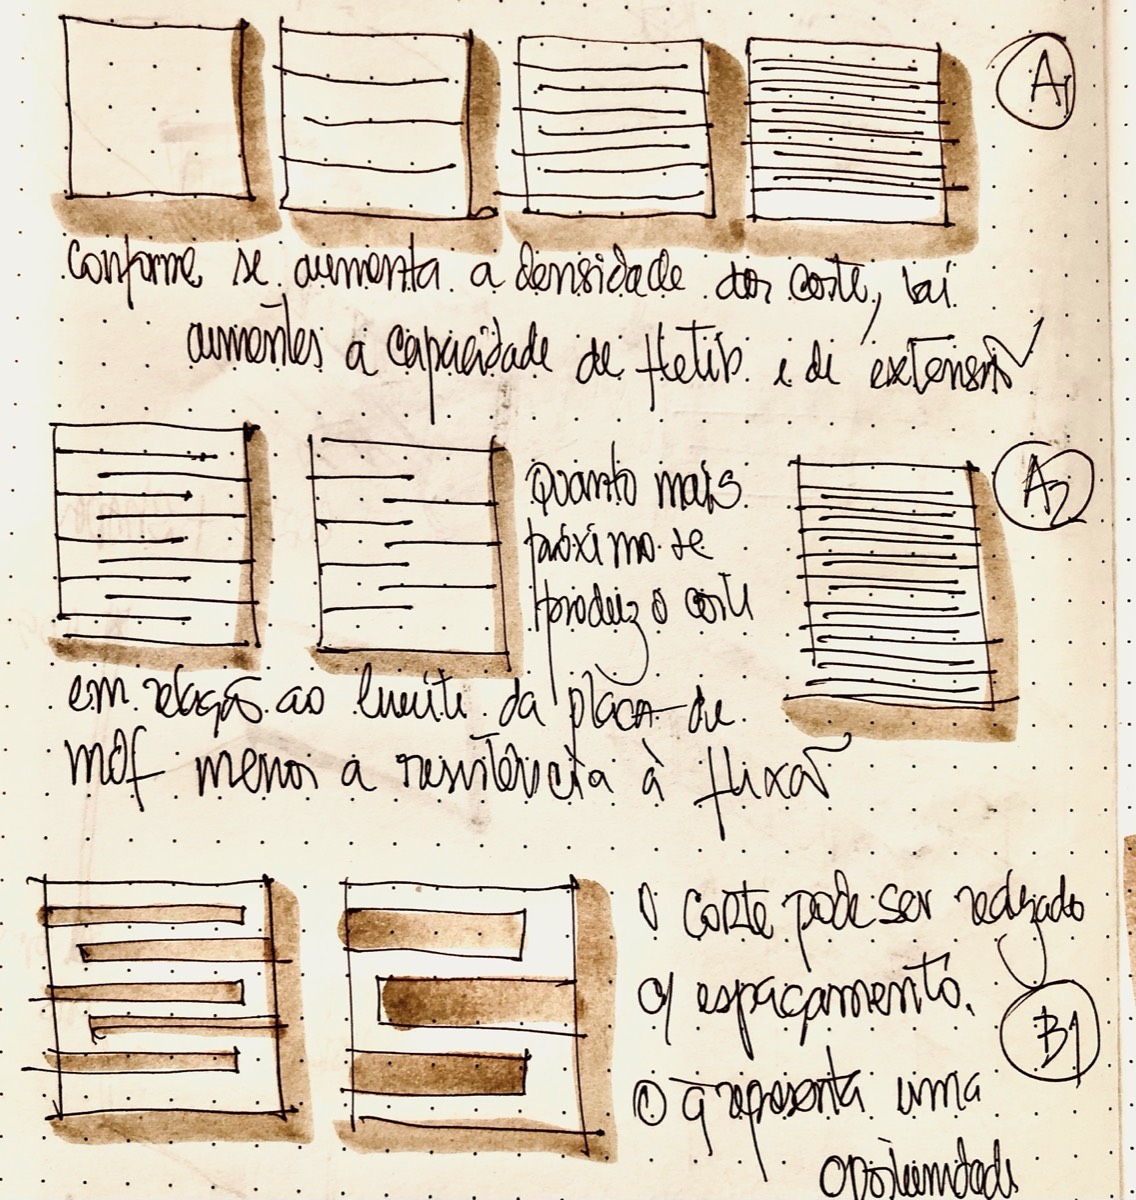 A1
Conforme se aumenta a densidade dos corte, vai
aumentes a capacidade de e de extensão
A2
Quanto mais
próximo se
produz o corte
em relação ao limite da placa de
mdf menor a resistência à flixão
O corte pode ser realizado
c/ espaçamento.
B1
O q representa uma
oportunidade